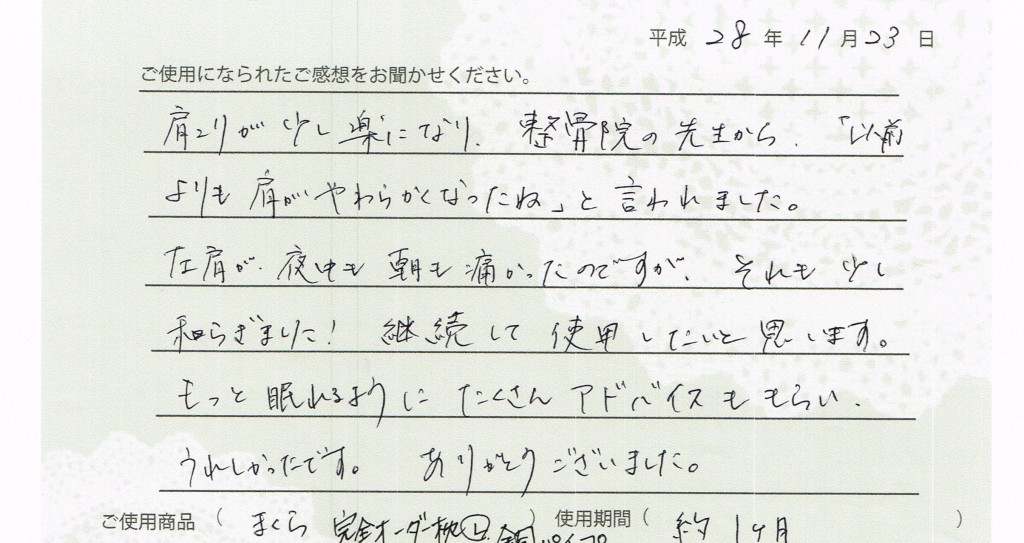 平成 28 年 11 月 23 日
ご使用になられたご感想をお聞かせください。
肩こりが少し楽になり、整骨院の先生から、「以前
よりも肩がやわらかくなったね」と言われました。
左肩が、夜中も朝も痛かったのですが、それも少し
和らぎました！ 継続して使用したいと思います。
もっと眠れるようにたくさんアドバイスももらい、
うれしかったです。 ありがとうございました。
ご使用商品 ( まくら 完全オーダー枕 ) 使用期間 ( 約 1ヶ月 )